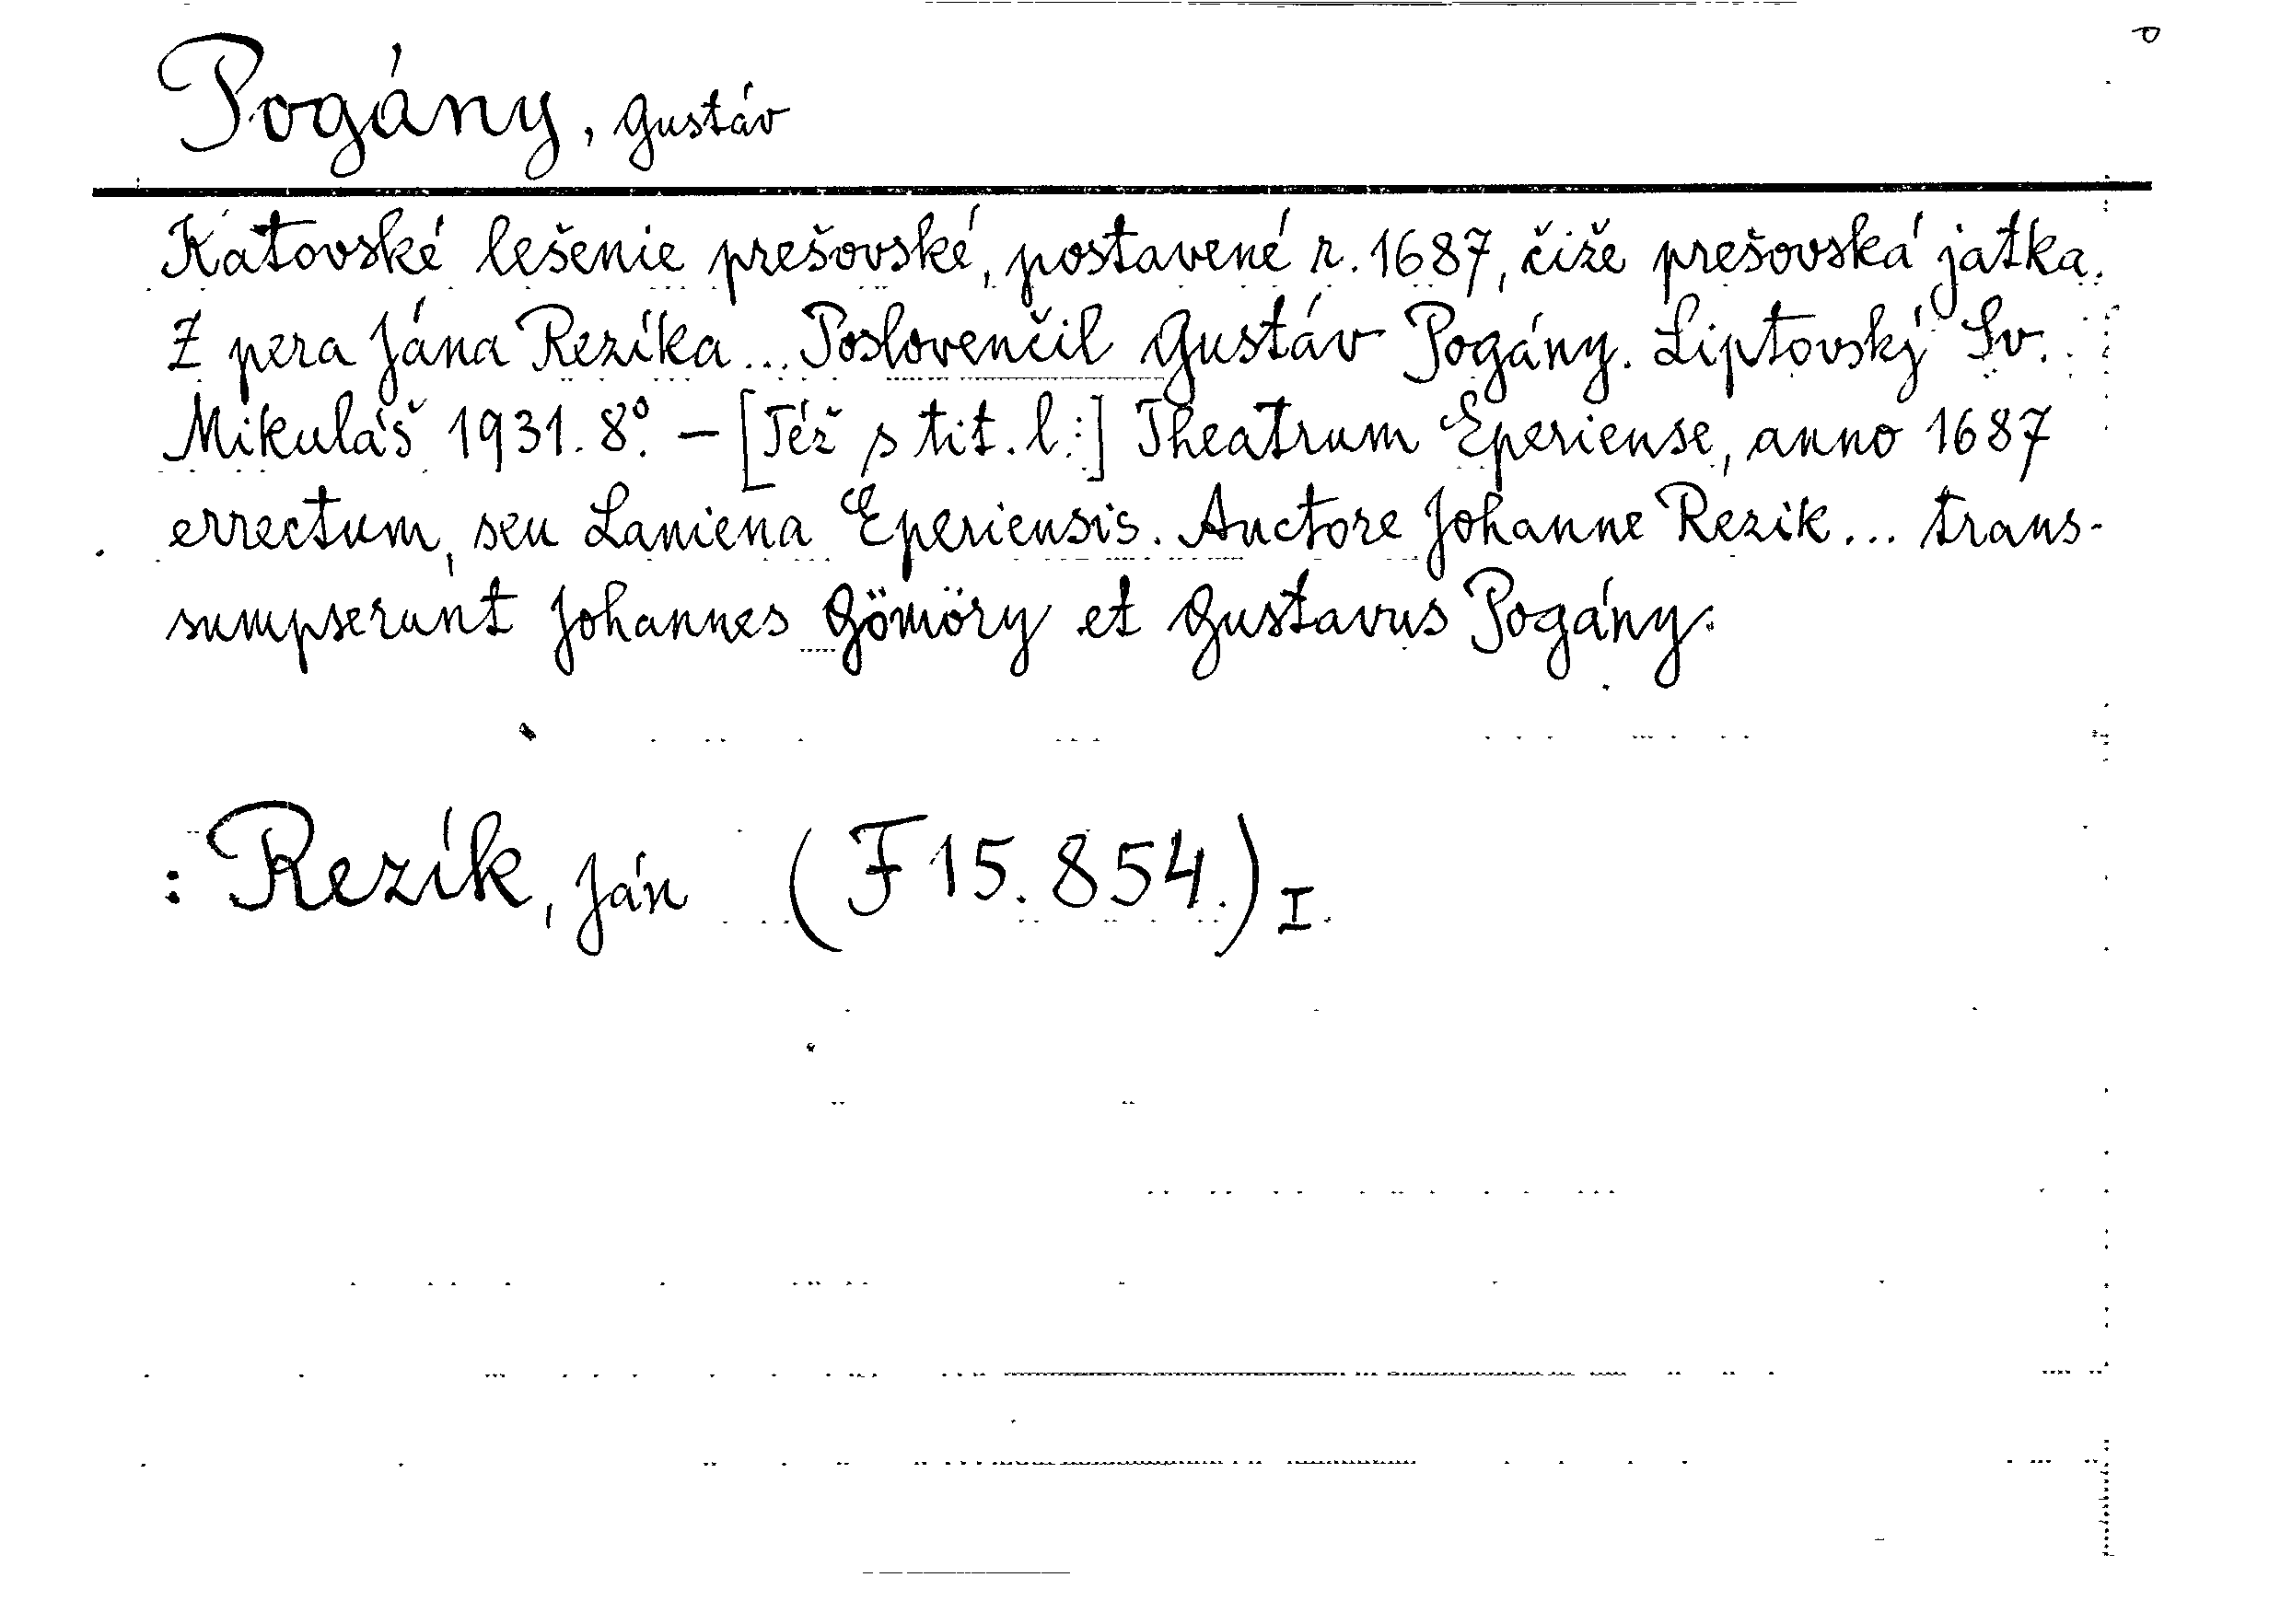 Pogány, Gustáv
Katovské lešenie prešovské, postavené r. 1687, čiže prešovská jatka.
Z pera Jána Rezíka... Poslovenčil Gustáv Pogány. Liptovský Sv.
Mikuláš 1931. 8°. – [Též s tit. l.:] Theatrum Eperiense, anno 1687
errectum, seu Laniena Eperiensis. Auctore Johanne Rezik... trans-
sumpserunt Johannes Gömöry et Gustavus Pogány.
: Rezík, Ján (F 15.854.) I.